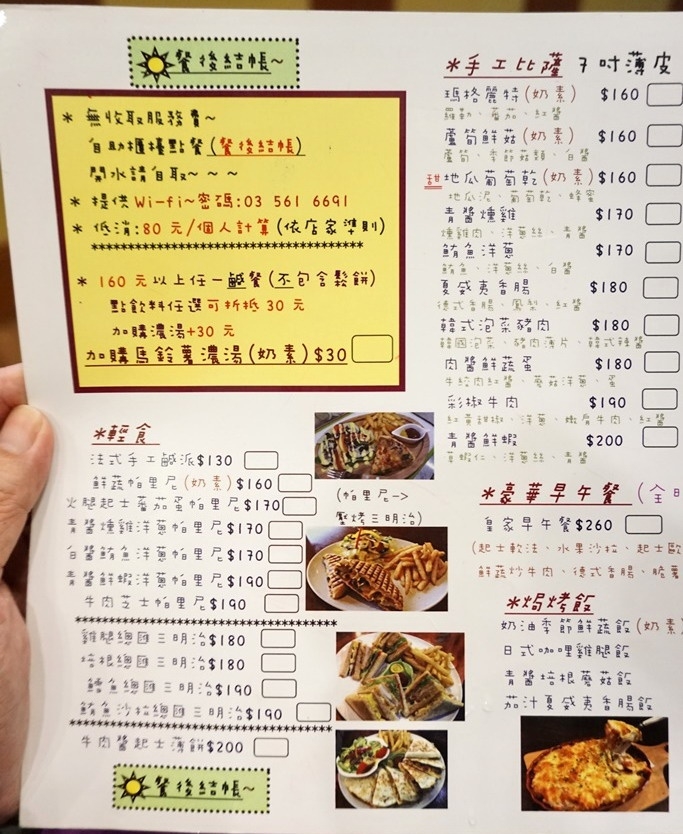 餐後結帳~
* 無收取服務費~
自助櫃檯點餐(餐後結帳)
開水請自取~~~
* 提供Wi-fi~密碼:03 561 6691
* 低消:80 元/個人計算(依店家準則)
* 160 元以上任一鹹餐(不包含鬆餅)
點飲料任選可折抵 30 元
加購濃湯+30 元
加購馬鈴薯濃湯(奶素)$30
*輕食
法式手工鹹派$130
鮮蔬帕里尼(奶素)$160
火腿起士蕃茄蛋帕里尼$170
青醬燻雞洋蔥帕里尼$170
白醬鮪魚洋蔥帕里尼$170
青醬鮮蝦洋蔥帕里尼$190
牛肉芝士帕里尼$190
雞腿總匯三明治$180
培根總匯三明治$180
鱈魚總匯三明治$190
鮪魚沙拉總匯三明治$190
牛肉醬起士薄餅$200
餐後結帳~
(帕里尼->
壓烤三明治)
*手工比薩 7吋薄皮
瑪格麗特(奶素) $160
羅勒、蕃茄、紅醬
蘆筍鮮菇(奶素) $160
蘆筍、季節菇類、白醬
甜 地瓜葡萄乾(奶素) $160
地瓜泥、葡萄乾、蜂蜜
青醬燻雞 $170
燻雞肉、洋蔥絲、青醬
鮪魚洋蔥 $170
鮪魚、洋蔥絲、白醬
夏威夷香腸 $180
德式香腸、鳳梨、紅醬
韓式泡菜豬肉 $180
韓國泡菜、豬肉薄片、韓式辣醬
肉醬鮮蔬蛋 $180
牛絞肉紅醬、蘑菇洋蔥、蛋
彩椒牛肉 $190
紅黃甜椒、洋蔥、嫩肩牛肉、紅醬
青醬鮮蝦 $200
草蝦仁、洋蔥絲、青醬
*豪華早午餐 (全日
皇家早午餐$260
(起士軟法、水果沙拉、起士歐
鮮蔬炒牛肉、德式香腸、脆薯
*焗烤飯
奶油季節鮮蔬飯(奶素)
日式咖哩雞腿飯
青醬培根蘑菇飯
茄汁夏威夷香腸飯